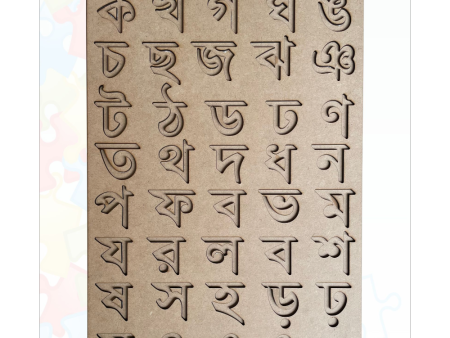 ক খ গ ঘ ঙ
চ ছ জ ঝ ঞ
ট ঠ ড ঢ ণ
ত থ দ ধ ন
প ফ ব ভ ম
য র ল ব শ
ষ স হ ড় ঢ়